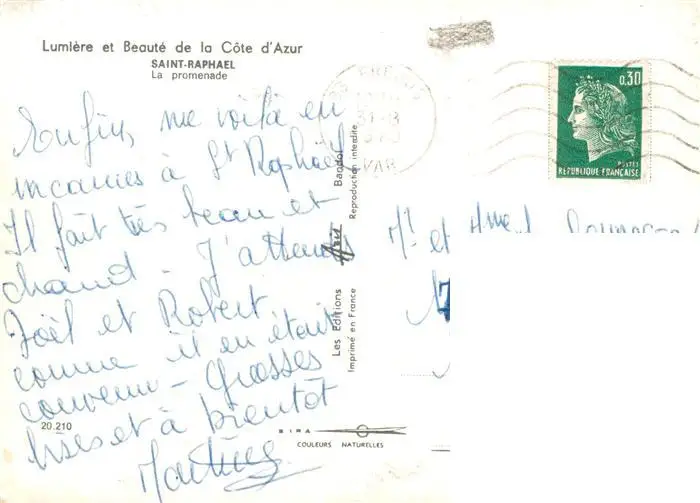 Lumière et Beauté de la Côte d'Azur
SAINT-RAPHAEL
La promenade
Enfin, me voilà en
vacances à St Raphaël
Il fait très beau et
chaud - J'attends
Joël et Robert
comme il en était
convenu - Grosses
bises et à bientôt
Martine
20.210
Les Editions Aris Bandol
Imprimé en France
Reproduction interdite
COULEURS NATURELLES
VAR
0,30
POSTES
REPUBLIQUE FRANÇAISE
Mr et Mme